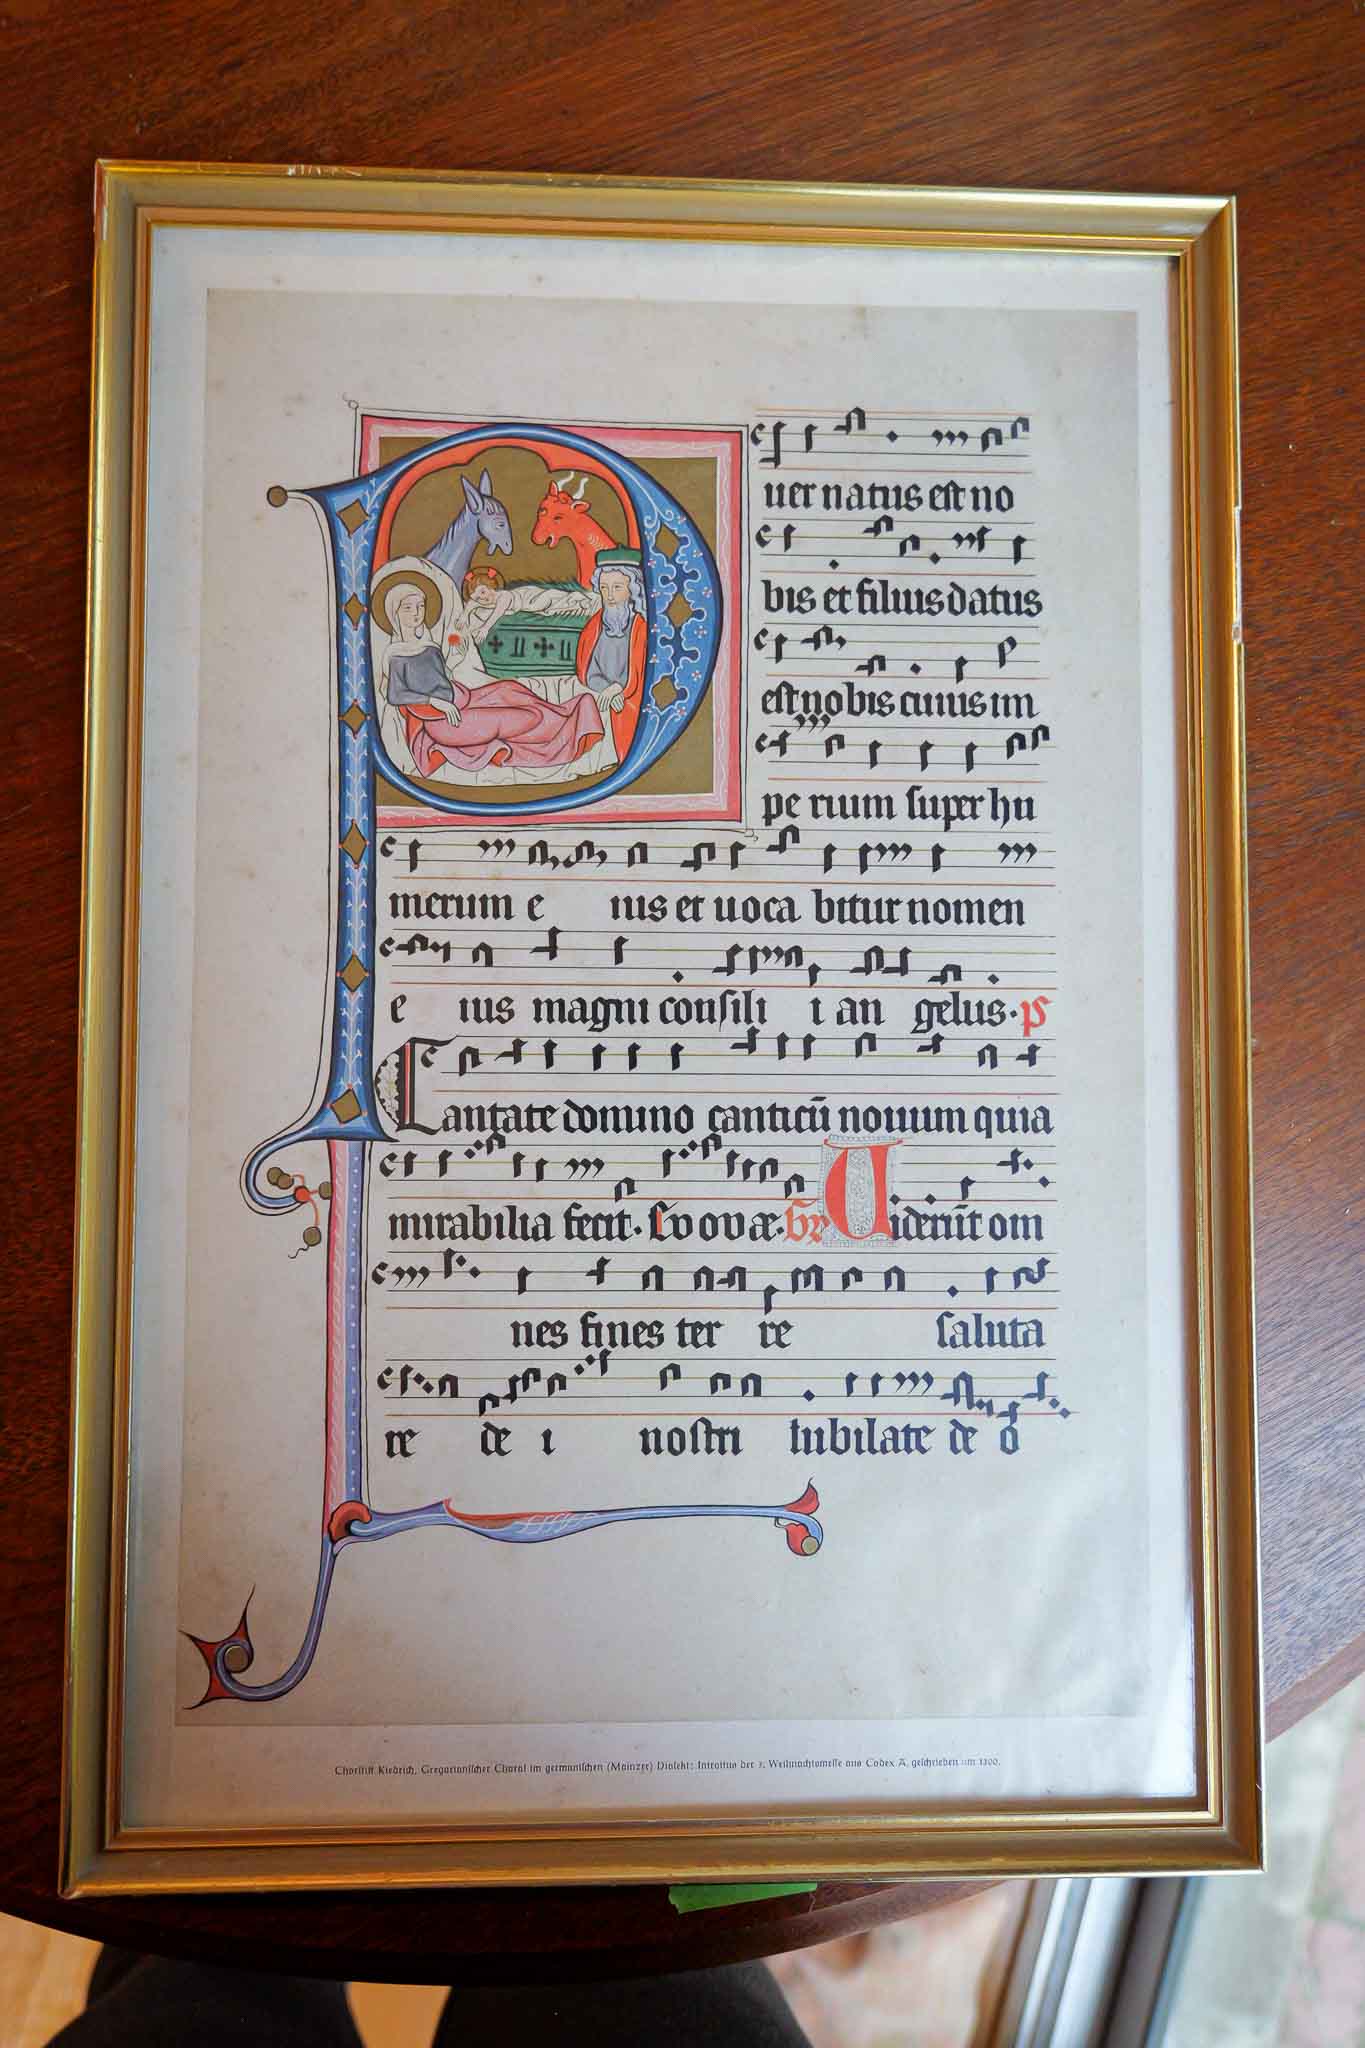 P uer natus est no
bis et filius datus
est nobis cuius im
pe rium super hu
merum e ius et uoca bitur nomen
e ius magni consili i an gelus. ps
Cantate domino canticū nouum quia
mirabilia fecit. Euouae. Gr Uiderūt om
nes fines ter re saluta
re de i nostri Iubilate de o
Chorstift Kiedrich, Gregorianischer Choral im germanischen (Mainzer) Dialekt: Introitus der 3. Weihnachtsmesse aus Codex A, geschrieben um 1300.